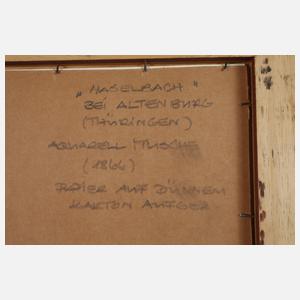 „HASELBACH"
BEI ALTENBURG
(THÜRINGEN)
AQUARELL / TUSCHE
(1864)
PAPIER AUF DÜNNEM
KARTON AUFGEZ